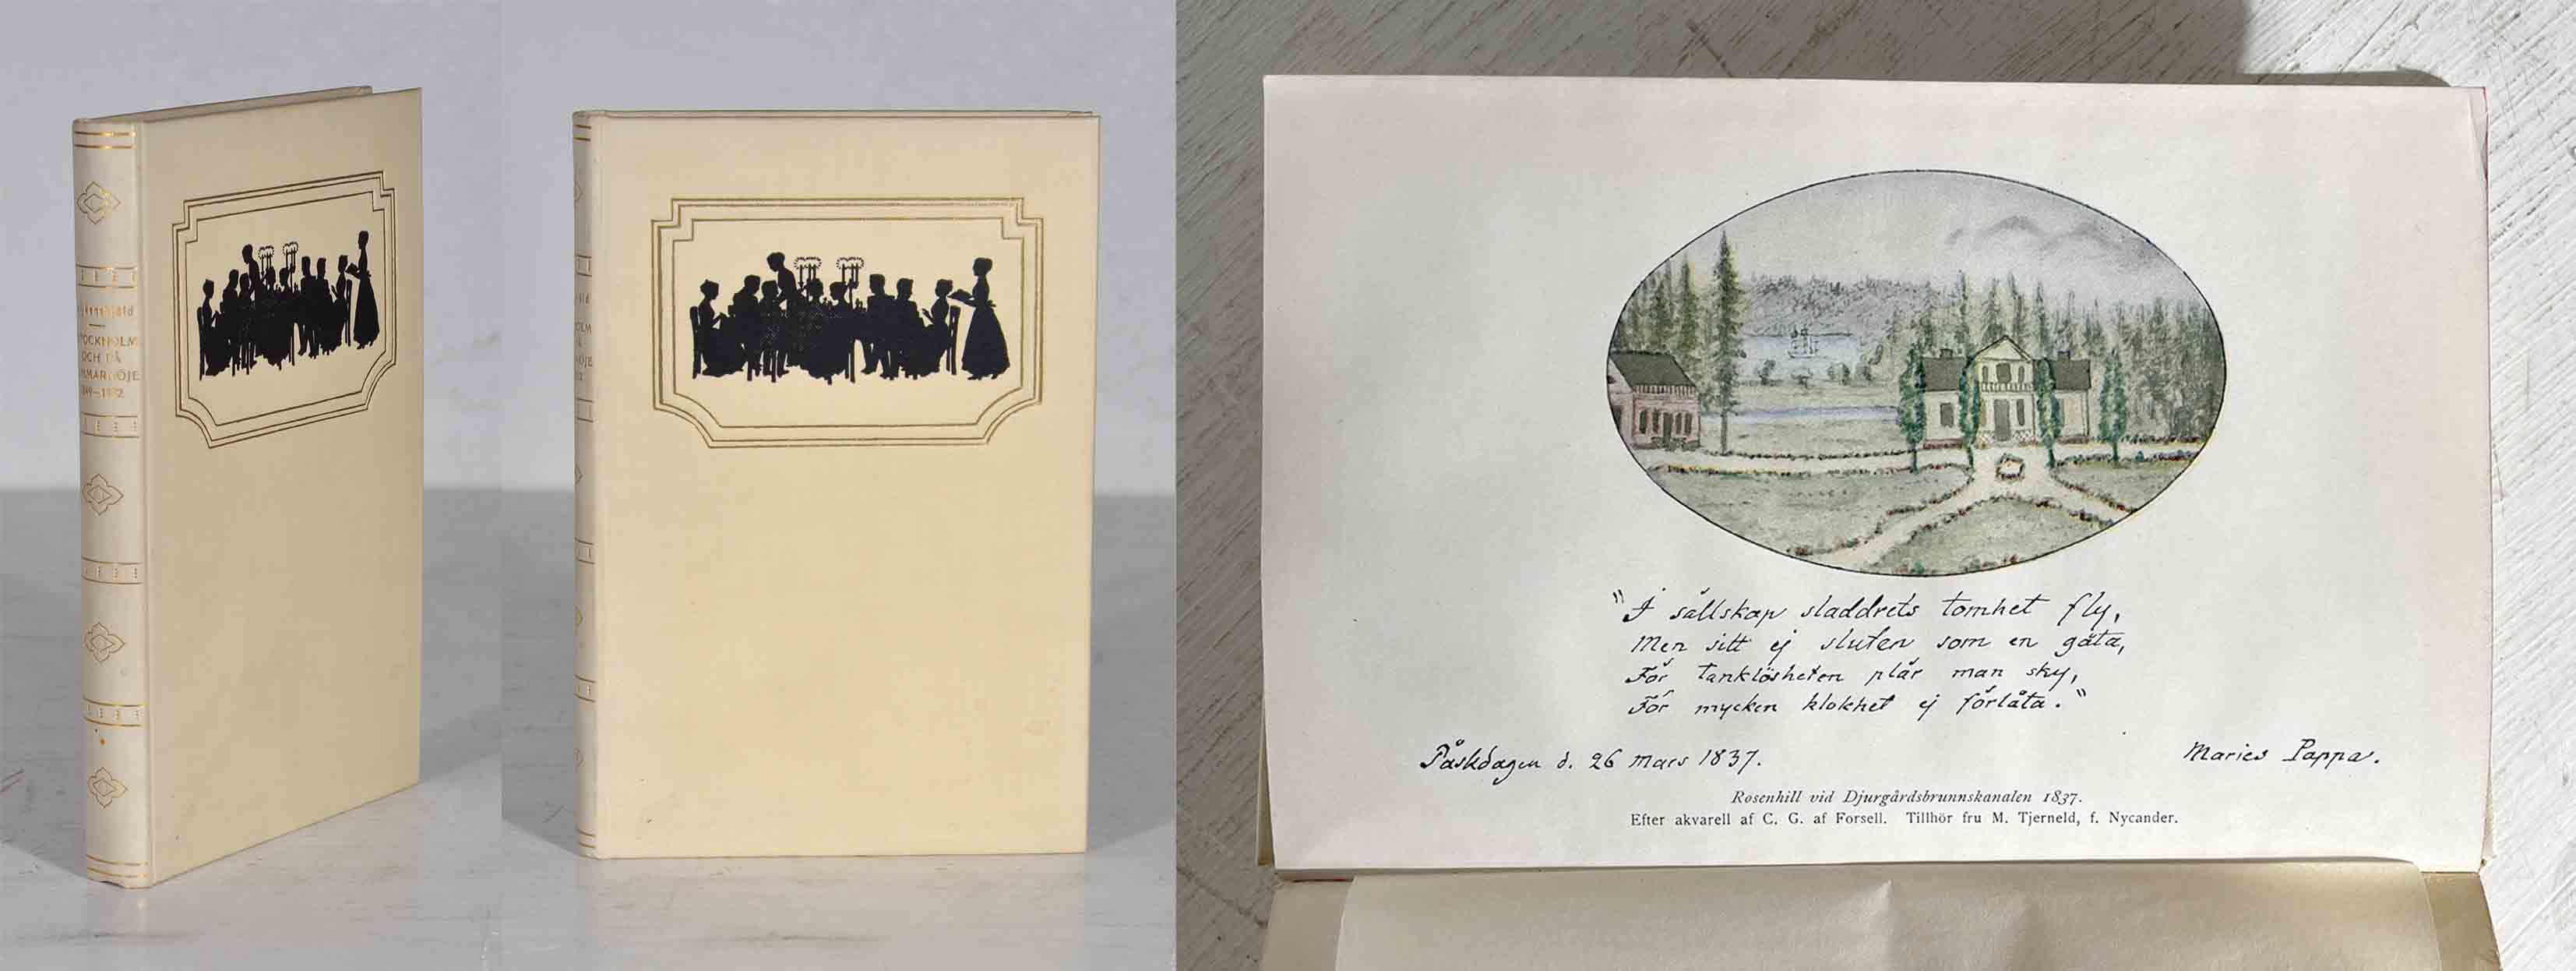 OCH PÅ
"I sällskap sladdrets tomhet fly,
Men sitt ej sluten som en gåta,
För tanklösheten plär man sky,
För mycken klokhet ej förlåta."
Påskdagen d. 26 mars 1837.
Maries Pappa.
Rosenhill vid Djurgårdsbrunnskanalen 1837.
Efter akvarell af C. G. af Forsell. Tillhör fru M. Tjerneld, f. Nycander.